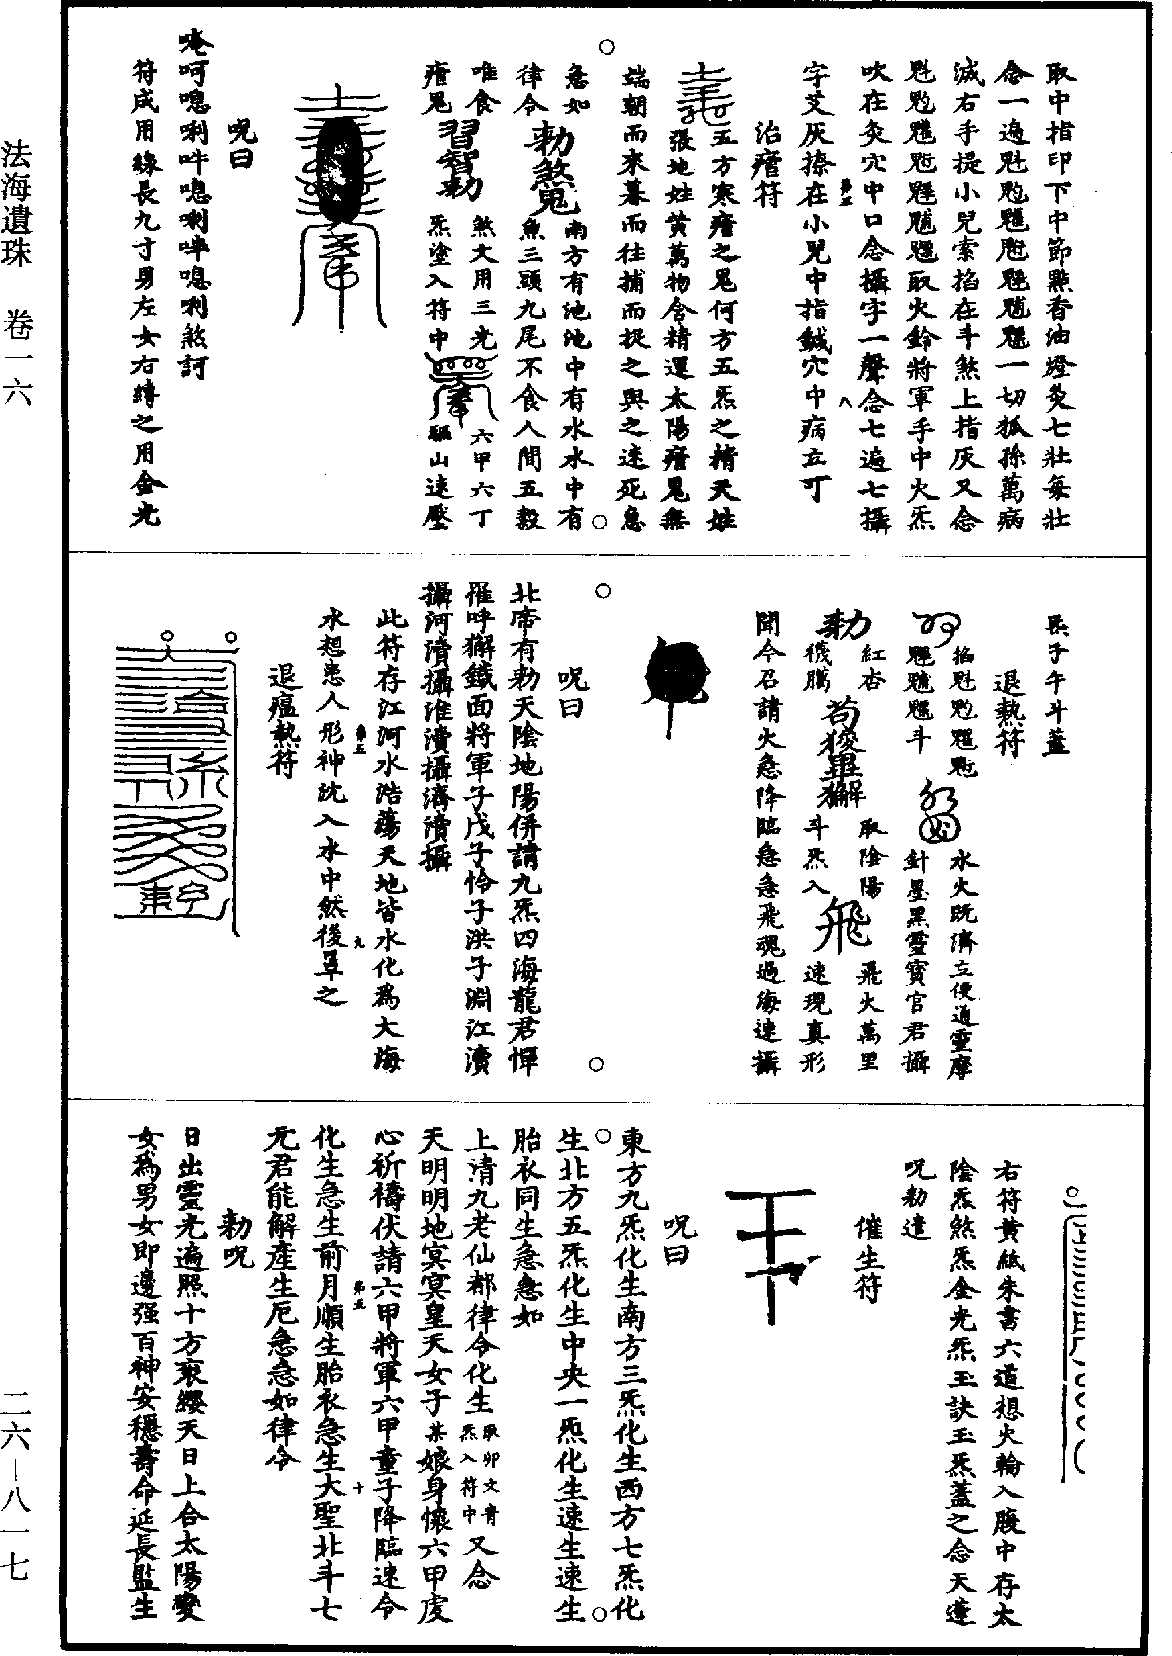 取中指印下中節點香油燈灸七壯每壯
念一遍魁𩲃䰢魓𩳐魒魒一切狐孫萬病
滅右手提小兒索掐在斗煞上指灰又念
取火鈴將軍手中火炁
吹在灸穴中口念攝字一聲念七遍七攝
字艾灰捺在小兒中指鍼穴中病立可
治瘧符
五方寒瘧之鬼何方五炁之精天姓
張地姓黃萬物含精還太陽瘧鬼無
端朝而來暮而往捕而捉之與之速死急
急如
律令
勅煞鬼
南方有池池中有水水中有
魚三頭九尾不食人間五穀
唯食
瘧鬼
習智勅
煞文用三光
炁塗入符中
六甲六丁
驅山速壓
呪曰
唵呵𠺁唎吽𠺁唎吽𠺁唎煞訶
符成用綠長九寸男左女右縛之用金光
炁子午斗蓋
退熱符
掐魁
斗
水火既濟立便通靈摩
針墨黑靈寶官君攝
勅
紅杏
儀騰
苟𤠔畢獬
取陰陽
斗炁入
飛
飛火萬里
速現真形
聞今召請火急降臨急急飛魂過海速攝
呪曰
北帝有勅天陰地陽併請九炁四海龍君惲
羅呼獬鐵面將軍子戊子怜子洪子淵江瀆
攝河瀆攝淮瀆攝濟瀆攝
此符存江河水浩蕩天地皆水化為大海
水想患人形神沈入水中然後罩之
退瘟熱符
右符黃紙朱書六道想火輪入腹中存太
陰炁煞炁金光炁玉訣玉炁蓋之念天蓬
呪勅遣
催生符
呪曰
東方九炁化生南方三炁化生西方七炁化
生北方五炁化生中央一炁化生速生速生
胎衣同生急急如
上清九老仙都律令化生取卯文青炁入符中又念
天明明地冥冥皇天女子某娘身懷六甲虔
心祈禱伏請六甲將軍六甲童子降臨速令
化生急生前月順生胎衣急生大聖北斗七
元君能解產生厄急急如律令
勅呪
日出靈光遍照十方裹纓天日上合太陽變
女為男女即邊强百神安穩壽命延長監生
法海遺珠 卷一六
二六—八一七